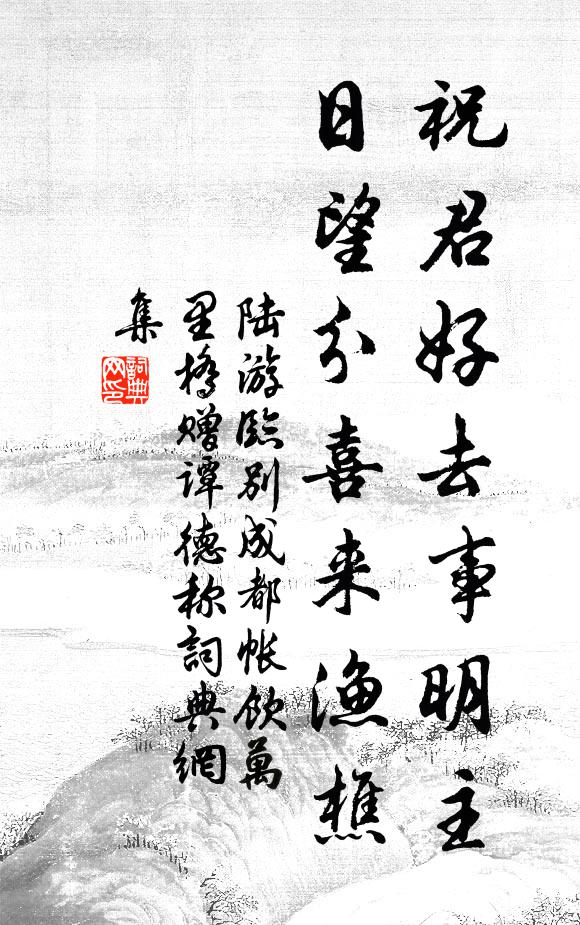 祝君好去事明主
日望分喜来渔樵
陆游臨别成都帐饮萬
里橋赠谭德称詞典網
集
詞典网印